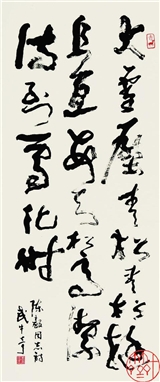 大雪压青松青松挺
且直要知松高洁
待到雪化时
陈毅同志诗